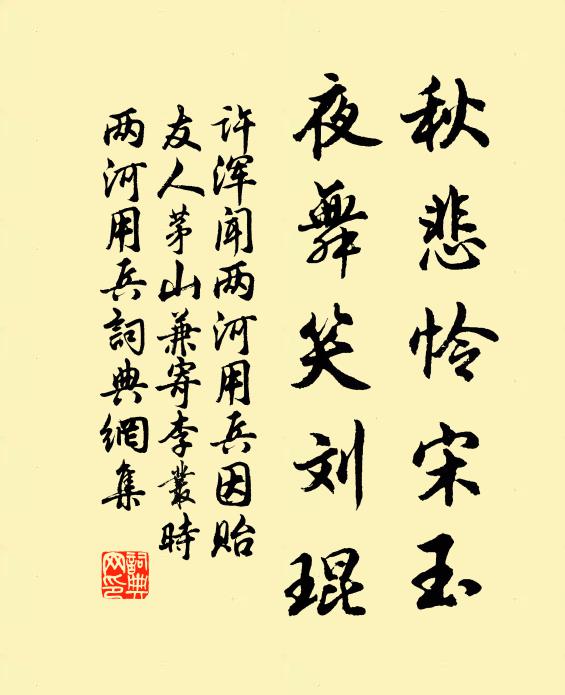 秋悲怜宋玉
夜舞笑刘琨
许浑闻两河用兵因贻
友人茅山兼寄李叢時
两河用兵詞典網集
詞典
网印